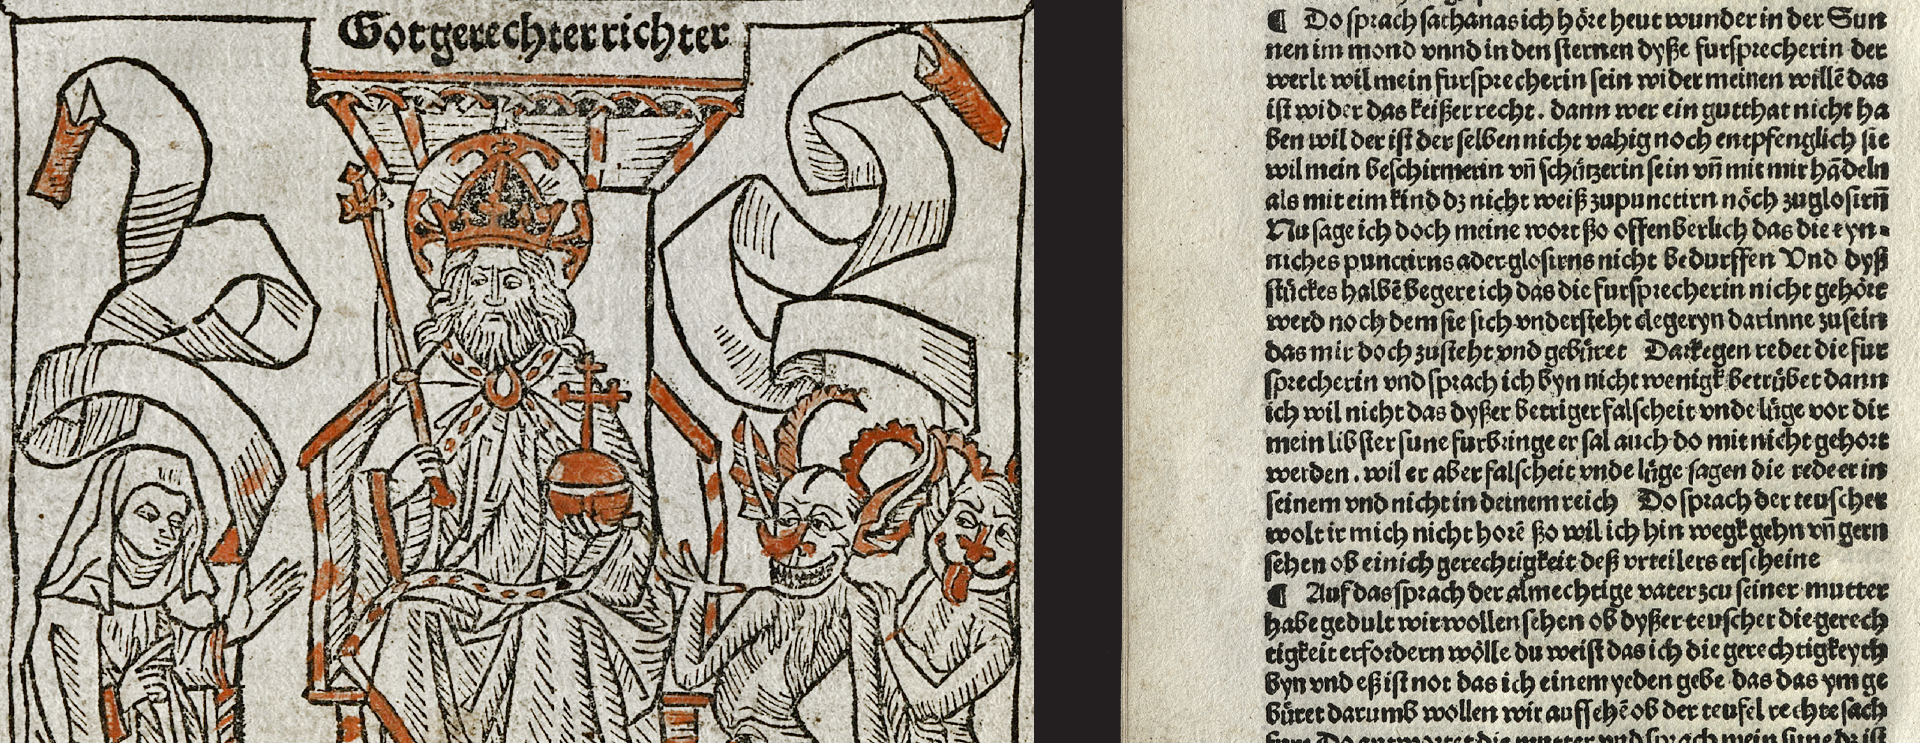 Got gerechter richter
¶ Do sprach sathanas ich höre heut wunder in der Sun
nen im mond vnnd in den sternen dyße fursprecherin der
werlt wil mein fursprecherin sein wider meinen willē das
ist wider das keißer recht. dann wer ein gutthat nicht ha
ben wil der ist der selben nicht vahig noch entpfenglich sie
wil mein beschirmerin vn̄ schützerin sein vn̄ mit mir hādeln
als mit eim kind dz nicht weiß zupunctirn nöch zuglosirn̄
Nu sage ich doch meine wort ßo offenberlich das die eyn-
niches punctirns ader glosirns nicht bedurffen Vnd dyß
stückes halbē begere ich das die fursprecherin nicht gehöre
werd noch dem sie sich vndersteht clegeryn darinne zusein
das mir doch zusteht vnd gebüret Darkegen redet die fur
sprecherin vnd sprach ich byn nicht wenigk betrübet dann
ich wil nicht das dyßer betriger falscheit vnde lüge vor dir
mein libster sune furbringe er sal auch do mit nicht gehort
werden. wil er aber falscheit vnde lüge sagen die rede er in
seinem vnd nicht in deinem reich Do sprach der teuscher
wolt ir mich nicht horē ßo wil ich hin wegk gehn vn̄ gern
sehen ob einich gerechtigkeit deß vrteilers erscheine
¶ Auf das sprach der almechtige vater zcu seiner mutter
habe gedult wir wollen sehen ob dyßer teuscher die gerech
tigkeit erfordern wölle du weist das ich die gerechtigkeyth
byn vnd eß ist not das ich einem yeden gebe das das ym ge
büret darumb wollen wir auffsehē ob der teufel rechte sach
Do antwortet die mutter vnd sprach mein sune dz ist